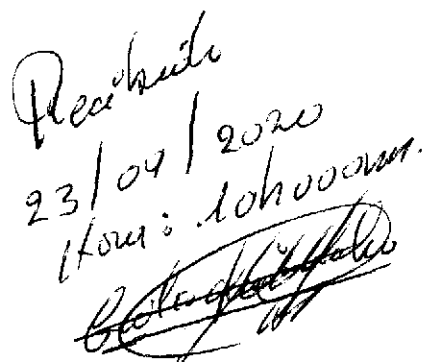 Recibido
23/04/2020
Hora: 10h00am.